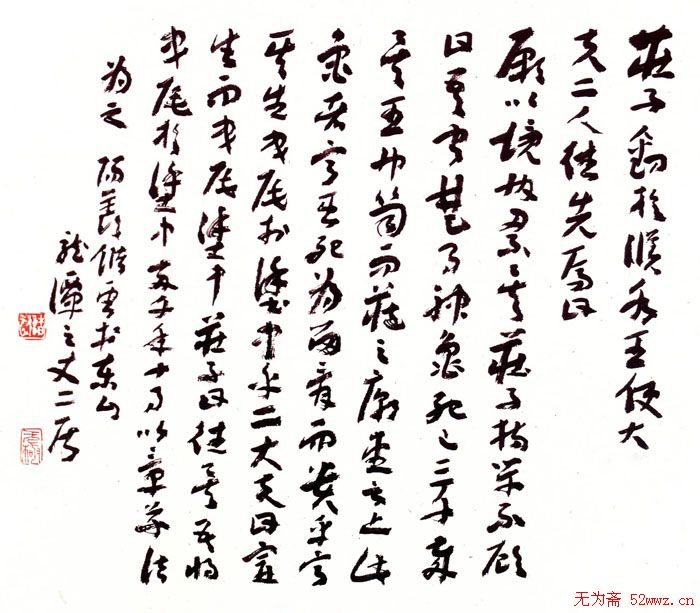 莊子釣於濮水王使大
夫二人往先焉曰
願以境內累矣莊子持竿不顧
曰吾聞楚有神龜死已三千歲
矣王巾笥而藏之廟堂之上此
龜者寧其死為留骨而貴乎寧
其生曳尾於塗中乎二大夫曰寧
生而曳尾塗中莊子曰往矣吾將
曳尾於塗中 年十月以章草法
为之 陽羨儲雲於東山
龍潭之丈二居
无为斋 52wwz.cn